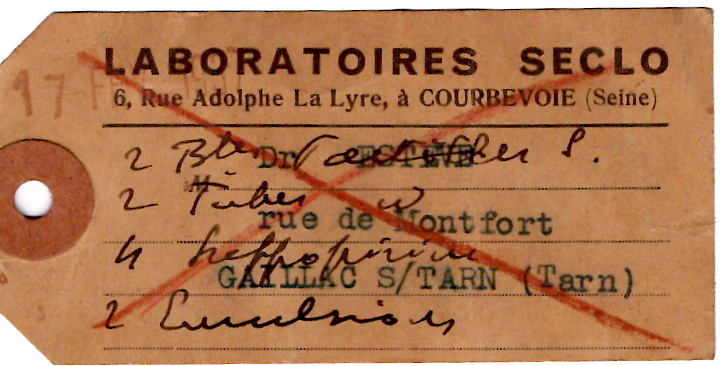 LABORATOIRES SECLO
6, Rue Adolphe La Lyre, à COURBEVOIE (Seine)
17
2 Btes S.
Dr ESTEVE
2 Tubes
rue de Montfort
4
GAILLAC S/TARN (Tarn)
2 Emulsions